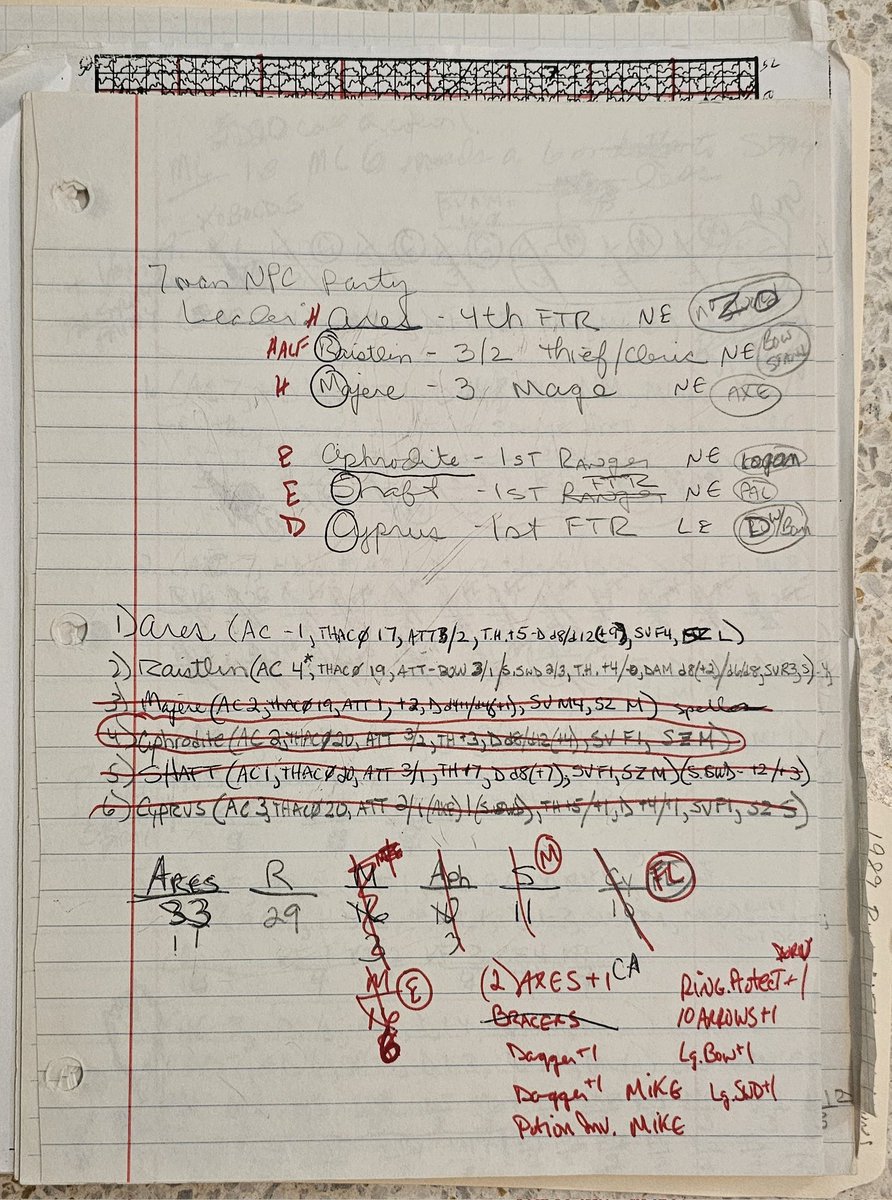 52
7 man NPC Party
Leader H Ares - 4th FTR NE
HALF Raistlin - 3/2 Thief/Cleric NE BOW
H Majere - 3 Mage NE AXE
E Aphrodite - 1st Ranger NE Logan
E Shaft - 1st Ranger FTR NE PAL
D Cyprus - 1st FTR LE
1) Ares (AC -1, THACØ 17, ATT 3/2, T.H. +5 - D d8/d12(+9), SV F4, SZ L)
2) Raistlin (AC 4*, THACØ 19, ATT-BOW 3/1 / S.SWD 2/3, T.H. +4/-0, DAM d8(+2)/d6/d8, SV R3, S)
3) Majere (AC 2, THACØ 19, ATT 1, +2, D d4+1/d4(+1), SV M4, SZ M) spells
4) Aphrodite (AC 2, THACØ 20, ATT 3/2, TH +3, D d8/d12(+4), SV F1, SZ M)
5) SHAFT (AC 1, THACØ 20, ATT 3/1, TH +7, D d8(+7), SV F1, SZ M) (S.SWD - +2/+3)
6) CYPRUS (AC 3, THACØ 20, ATT 2/1 (AXE) 1 (S.SWD), TH +5/+1, D +4/+1, SV F1, SZ S)
ARES R M Aph S M Cy FL
33 29 16 10 11 10
11 3 3
M E (2) AXES +1 CA RING. Protect +1
16 BRACERS 10 ARROWS +1
6 Dagger +1 Lg. Bow +1
Dagger +1 MIKE Lg. SWD +1
Potion Inv. MIKE
1989